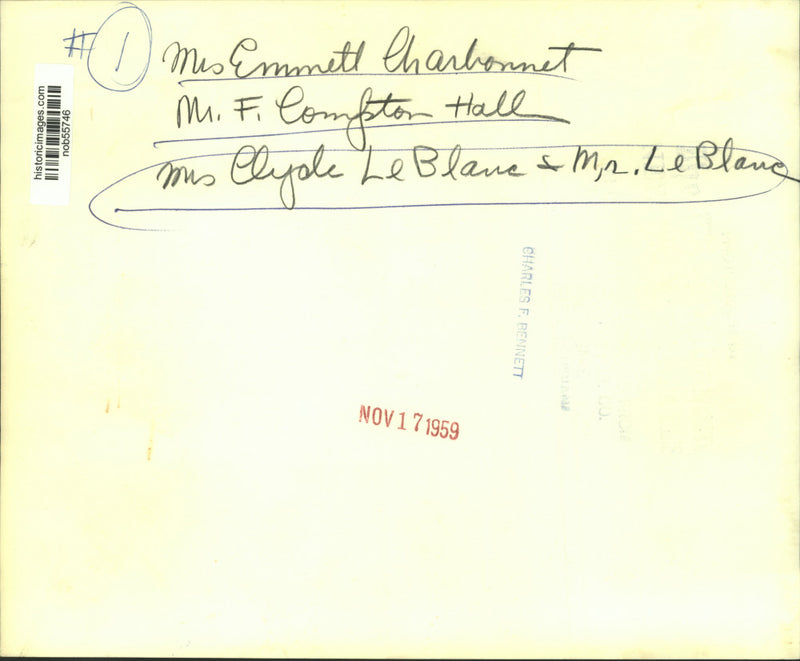 # 1
Mrs Emmett Charbonnet
Mr. F. Compton Hall
Mrs Clyde LeBlanc & Mr. LeBlanc
historicimages.com
nob55746
CHARLES F. BENNETT
NOV 17 1959
CO.